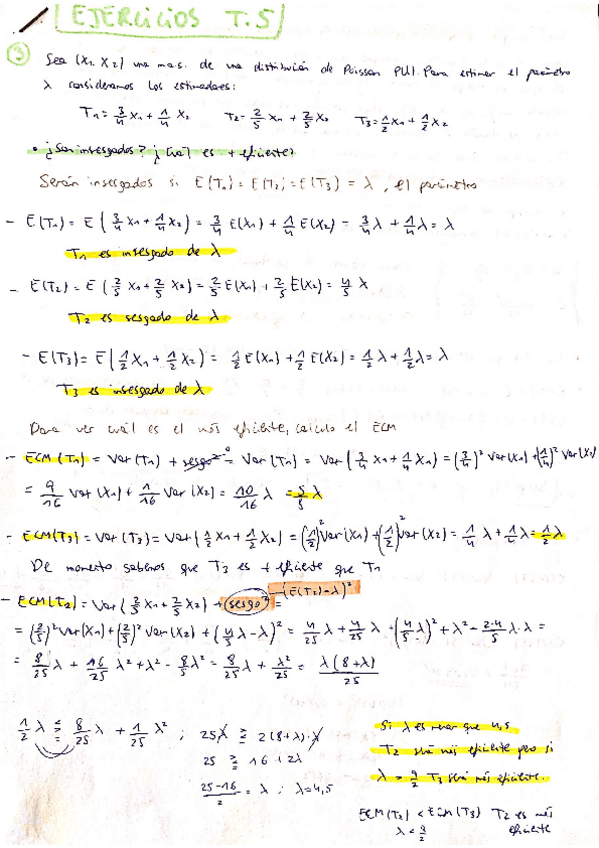 EJERCICIOS T.5
③ Sea (X1, X2) una m.a.s. de una distribución de Poisson P(λ). Para estimar el parámetro
λ consideramos los estimadores:
T1 = 3/4 X1 + 1/4 X2 T2 = 2/5 X1 + 2/5 X2 T3 = 1/2 X1 + 1/2 X2
• ¿Son insesgados? ¿Cuál es + eficiente?
Serán insesgados si E(T1) = E(T2) = E(T3) = λ, el parámetro
- E(T1) = E(3/4 X1 + 1/4 X2) = 3/4 E(X1) + 1/4 E(X2) = 3/4 λ + 1/4 λ = λ
T1 es insesgado de λ
- E(T2) = E(2/5 X1 + 2/5 X2) = 2/5 E(X1) + 2/5 E(X2) = 4/5 λ
T2 es sesgado de λ
- E(T3) = E(1/2 X1 + 1/2 X2) = 1/2 E(X1) + 1/2 E(X2) = 1/2 λ + 1/2 λ = λ
T3 es insesgado de λ
Para ver cuál es el más eficiente, calculo el ECM
- ECM(T1) = Var(T1) + sesgo² = Var(T1) = Var(3/4 X1 + 1/4 X1) = (3/4)² Var(X1) + (1/4)² Var(X2)
= 9/16 Var(X1) + 1/16 Var(X2) = 10/16 λ = 5/8 λ
- ECM(T3) = Var(T3) = Var(1/2 X1 + 1/2 X2) = (1/2)² Var(X1) + (1/2)² Var(X2) = 1/4 λ + 1/4 λ = 1/2 λ
De momento sabemos que T3 es + eficiente que T1
- ECM(T2) = Var(2/5 X1 + 2/5 X2) + sesgo² = (E(T2) - λ)²
= (2/5)² Var(X1) + (2/5)² Var(X2) + (4/5 λ - λ)² = 4/25 λ + 4/25 λ + (4/5 λ)² + λ² - 2·4/5 λ·λ =
= 8/25 λ + 16/25 λ² + λ² - 8/5 λ² = 8/25 λ + λ²/25 = λ(8+λ)/25
1/2 λ ≥ 8/25 λ + 1/25 λ² ; 25λ ≥ 2(8+λ)·λ
25 ≥ 16 + 2λ
25-16/2 = λ ; λ = 4,5
Si λ es menor que 4,5
T2 será más eficiente pero si
λ = 9/2 T3 será más eficiente.
ECM(T2) < ECM(T3) T2 es más
λ < 9/2 eficiente